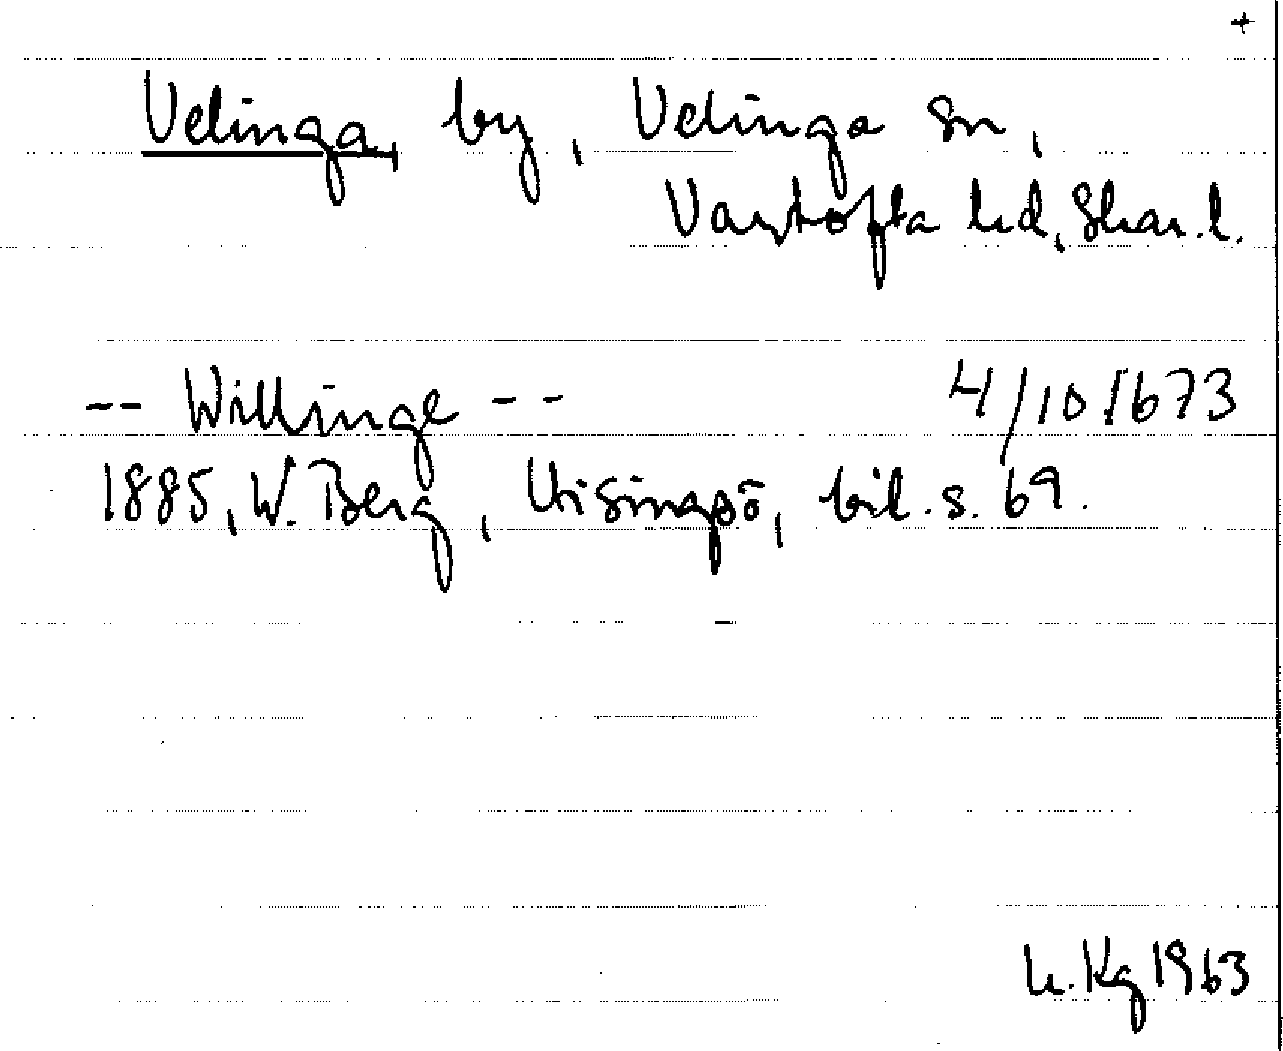 +
Velinga, by, Velinga sn,
Vartofta hd, Skar. l.
-- Willinge -- 4/10 1673
1885, W. Berg, Visingsö, bil. s. 69.
Kg 1963